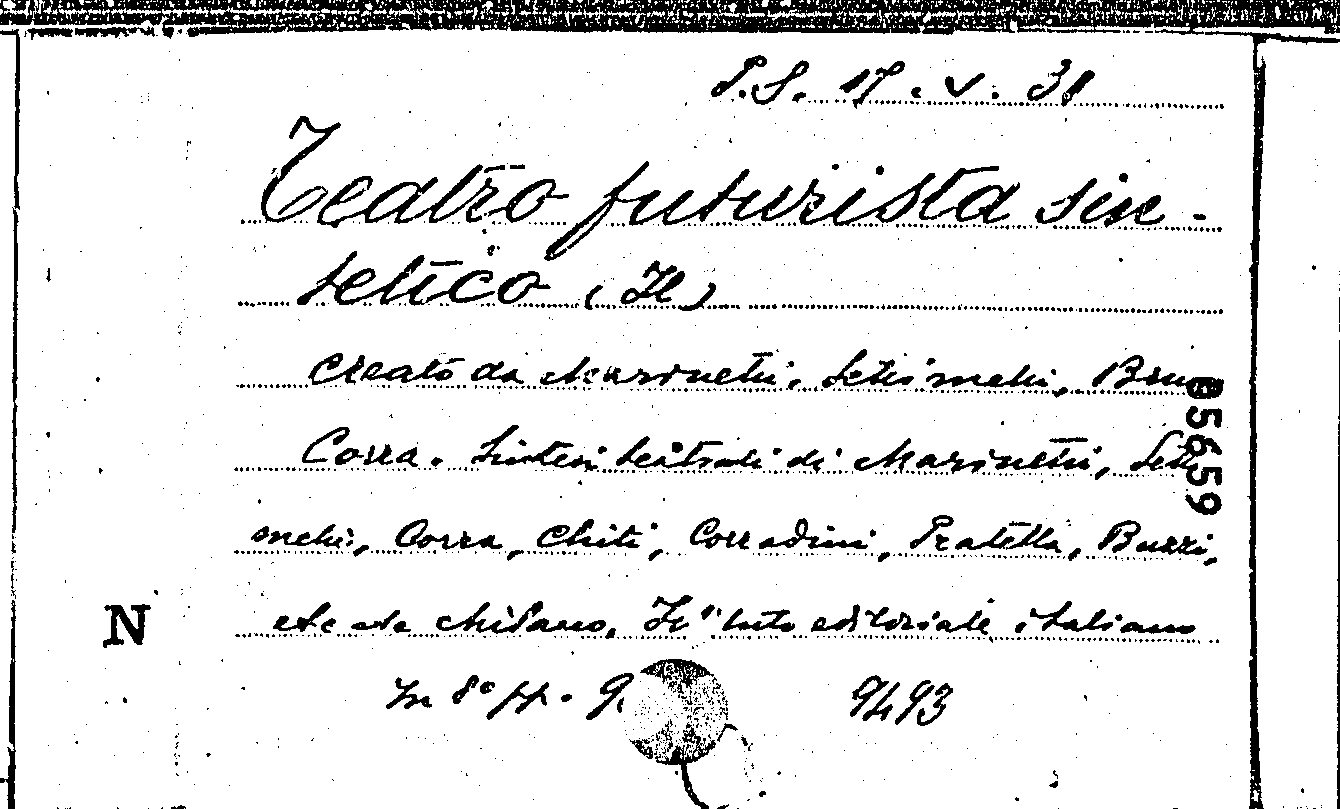 P.S. 17. V. 31
Teatro futurista sin-
tetico (Il)
creato da Marinetti, Settimelli, Bruno
Corra. Sintesi teatrali di Marinetti, Setti
melli, Corra, Chiti, Corradini, Pratella, Buzzi,
etc etc Milano, Istituto editoriale italiano
In 8° pp. 9
9493
N
05659